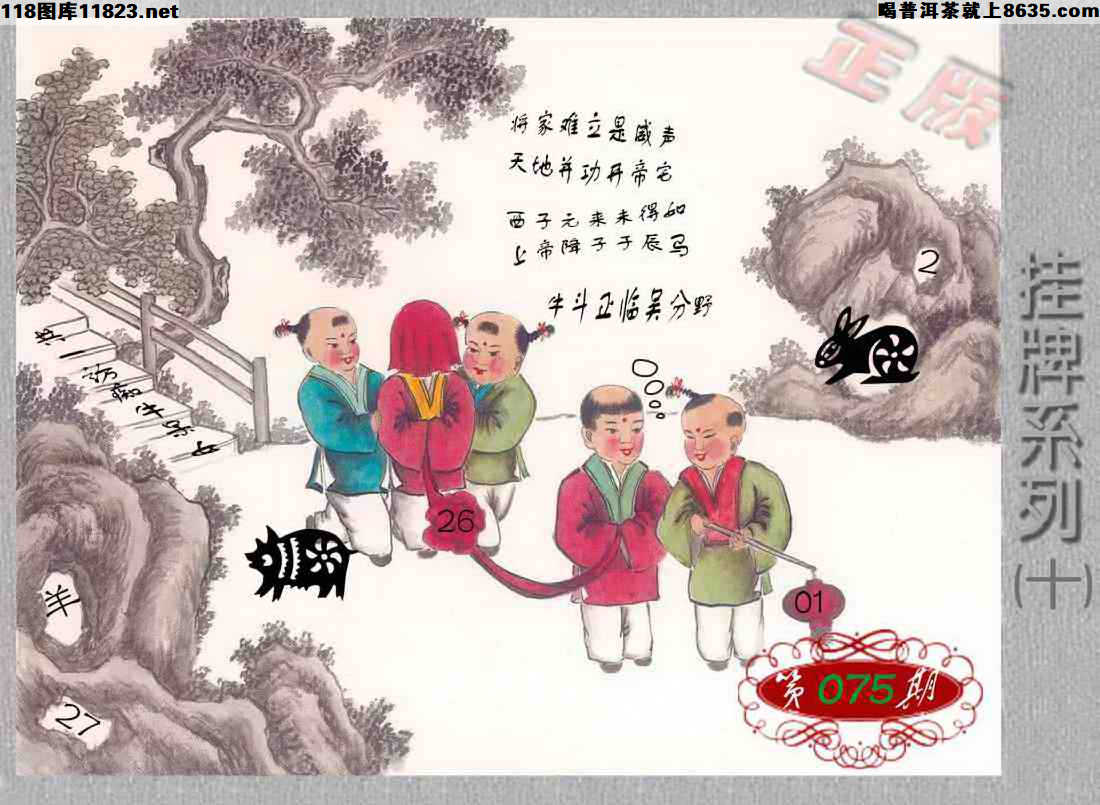 118图库11823.net
喝普洱茶就上8635.com
正版
将家难立是威声
天地并功开帝宅
西子元来未得如
上帝降子于辰马
牛斗正临吴分野
2
挂牌系列(十)
牛
女
26
羊
01
27
第075期